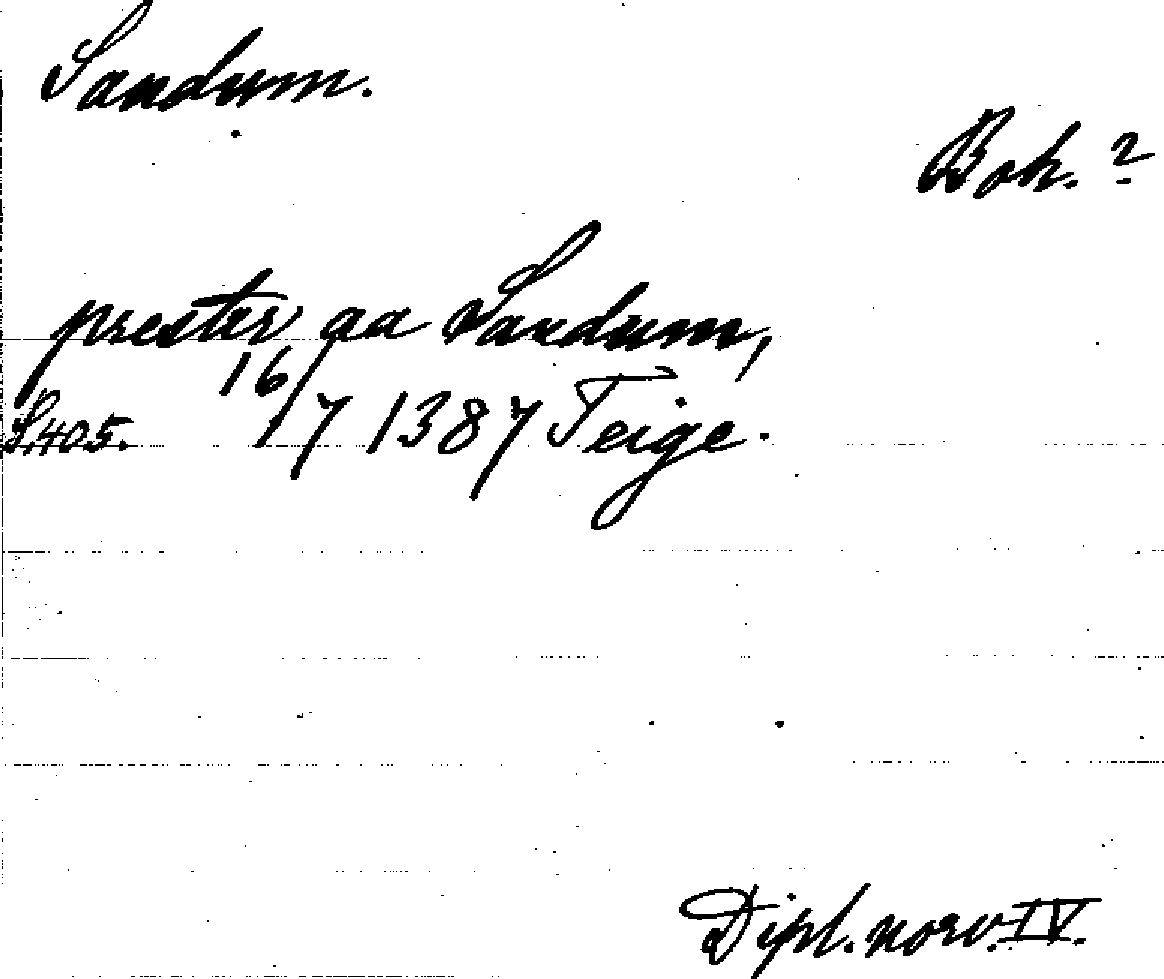 Sandum.
Boh. ?
prester aa Sandum,
S. 405. 16/7 1387 Teige.
Dipl. norv. IV.